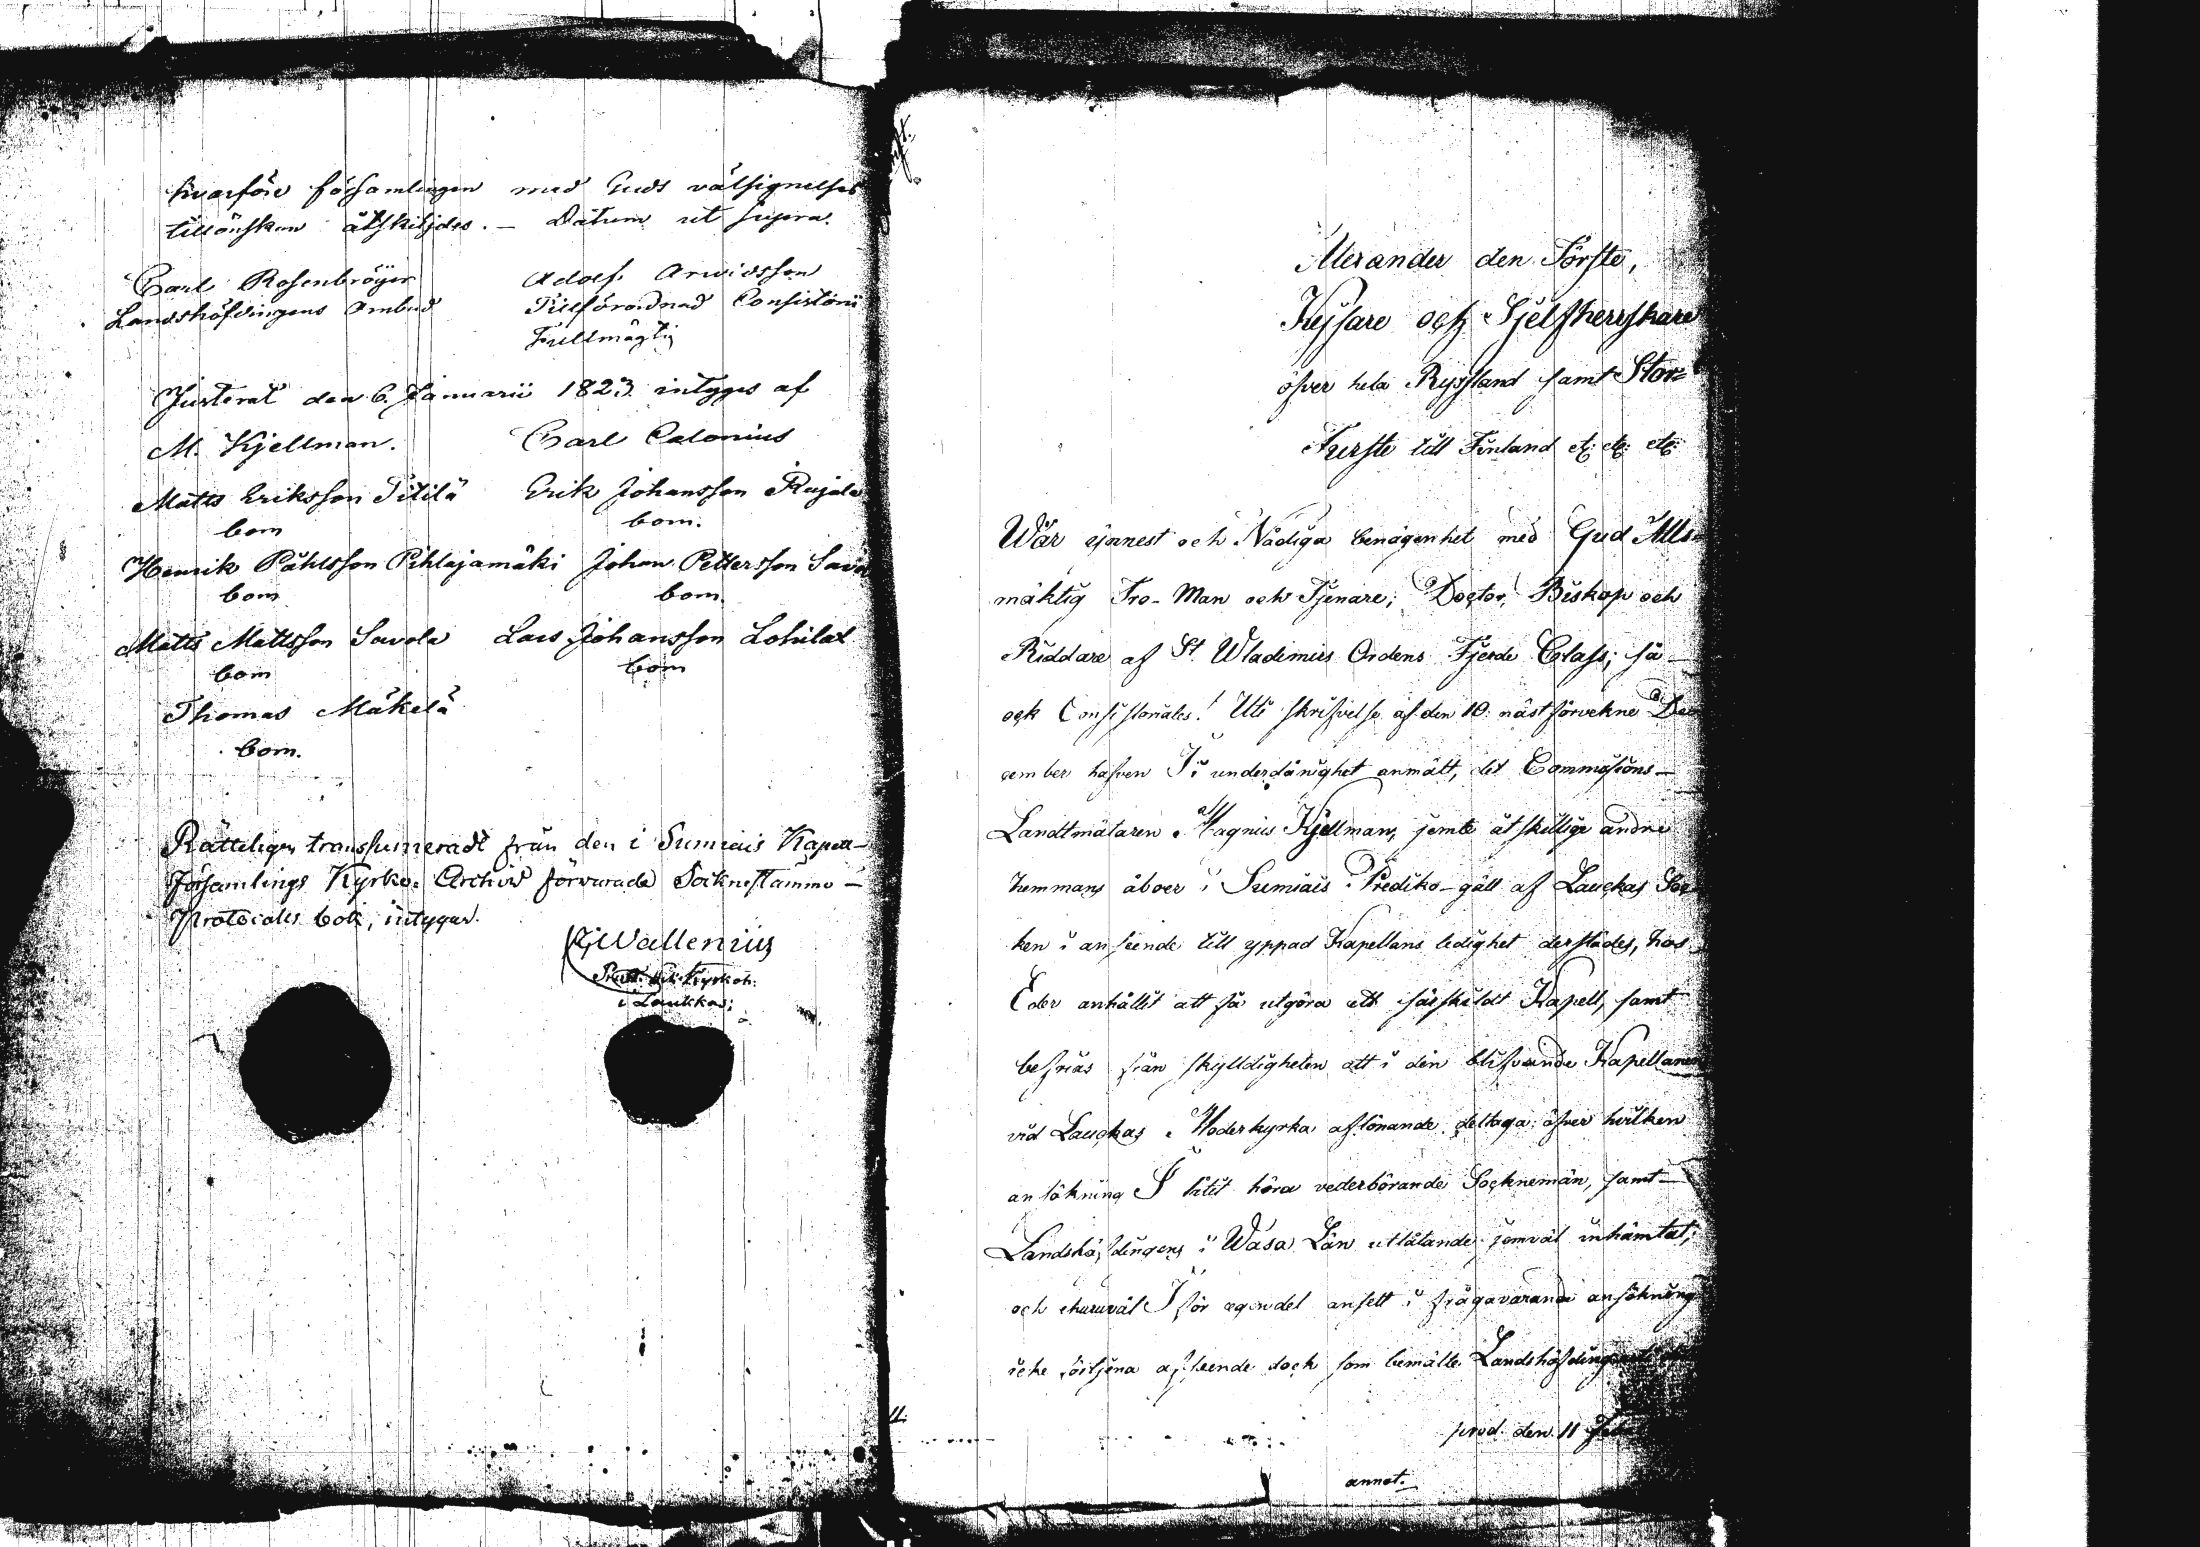 hvarföre församlingen med Guds välsignelses
tillönskan åtskiljdes. — Datum ut supra.
Carl Rosenbröijer
Landshöfdingens Ombud
Adolf Arwidsson
Tillförordnad Consistorii
Fullmägtig
Justerat den 6. Januarii 1823 intyges af
M. Kjellman. Carl Calonius
Matts Eriksson Titilä Erik Johansson Rajala
bom bom.
Henrik Påhlsson Pihlajamäki Johan Pettersson
bom bom.
Matts Mattsson Savola Lars Johansson
bom bom
Thomas Mäkelä
bom.
Rätteligen transsumeradt från den i Sumiais Kapell-
församlings Kyrko-Archiv förvarade Socknestämmo-
Protocolls bok, intygar.
Wallenius
Kyrkoh.
i Laukkas;
Alexander den Förste,
Kejsare och Sjelfherrskare
öfver hela Ryssland samt Stor-
Furste till Finland etc: etc: etc:
Wår ynnest och Nådiga benägenhet med Gud Alls-
mäktig Tro-Man och Tjenare, Doctor, Biskop och
Riddare af St. Wladimirs Ordens Fjerde Class; så
ock Consistoriales! Uti skrifvelse af den 10. nästförvekne De-
cember hafven I i underdånighet anmält, det Commissions-
Landtmätaren Magnus Kjellman, jemte åtskillige andre
hemmans åboer i Sumiais Prediko-gäll af Lauckas Soc-
ken i anseende till yppad Kapellans ledighet derstädes, hos
Eder anhållit att få utgöra ett särskildt Kapell, samt
befrias från skylldigheten att i den blifvande Kapellanens
vid Lauckas Moderkyrka aflönande deltaga; öfver hvilken
ansökning I låtit höra vederbörande Socknemän, samt
Landshöfdingens i Wasa Län utlåtande jemväl inhämtat;
och ehuruväl I för egen del ansett ifrågavarande ansökning
icke förtjena afseende dock som bemälte
prod. den 11
annot.